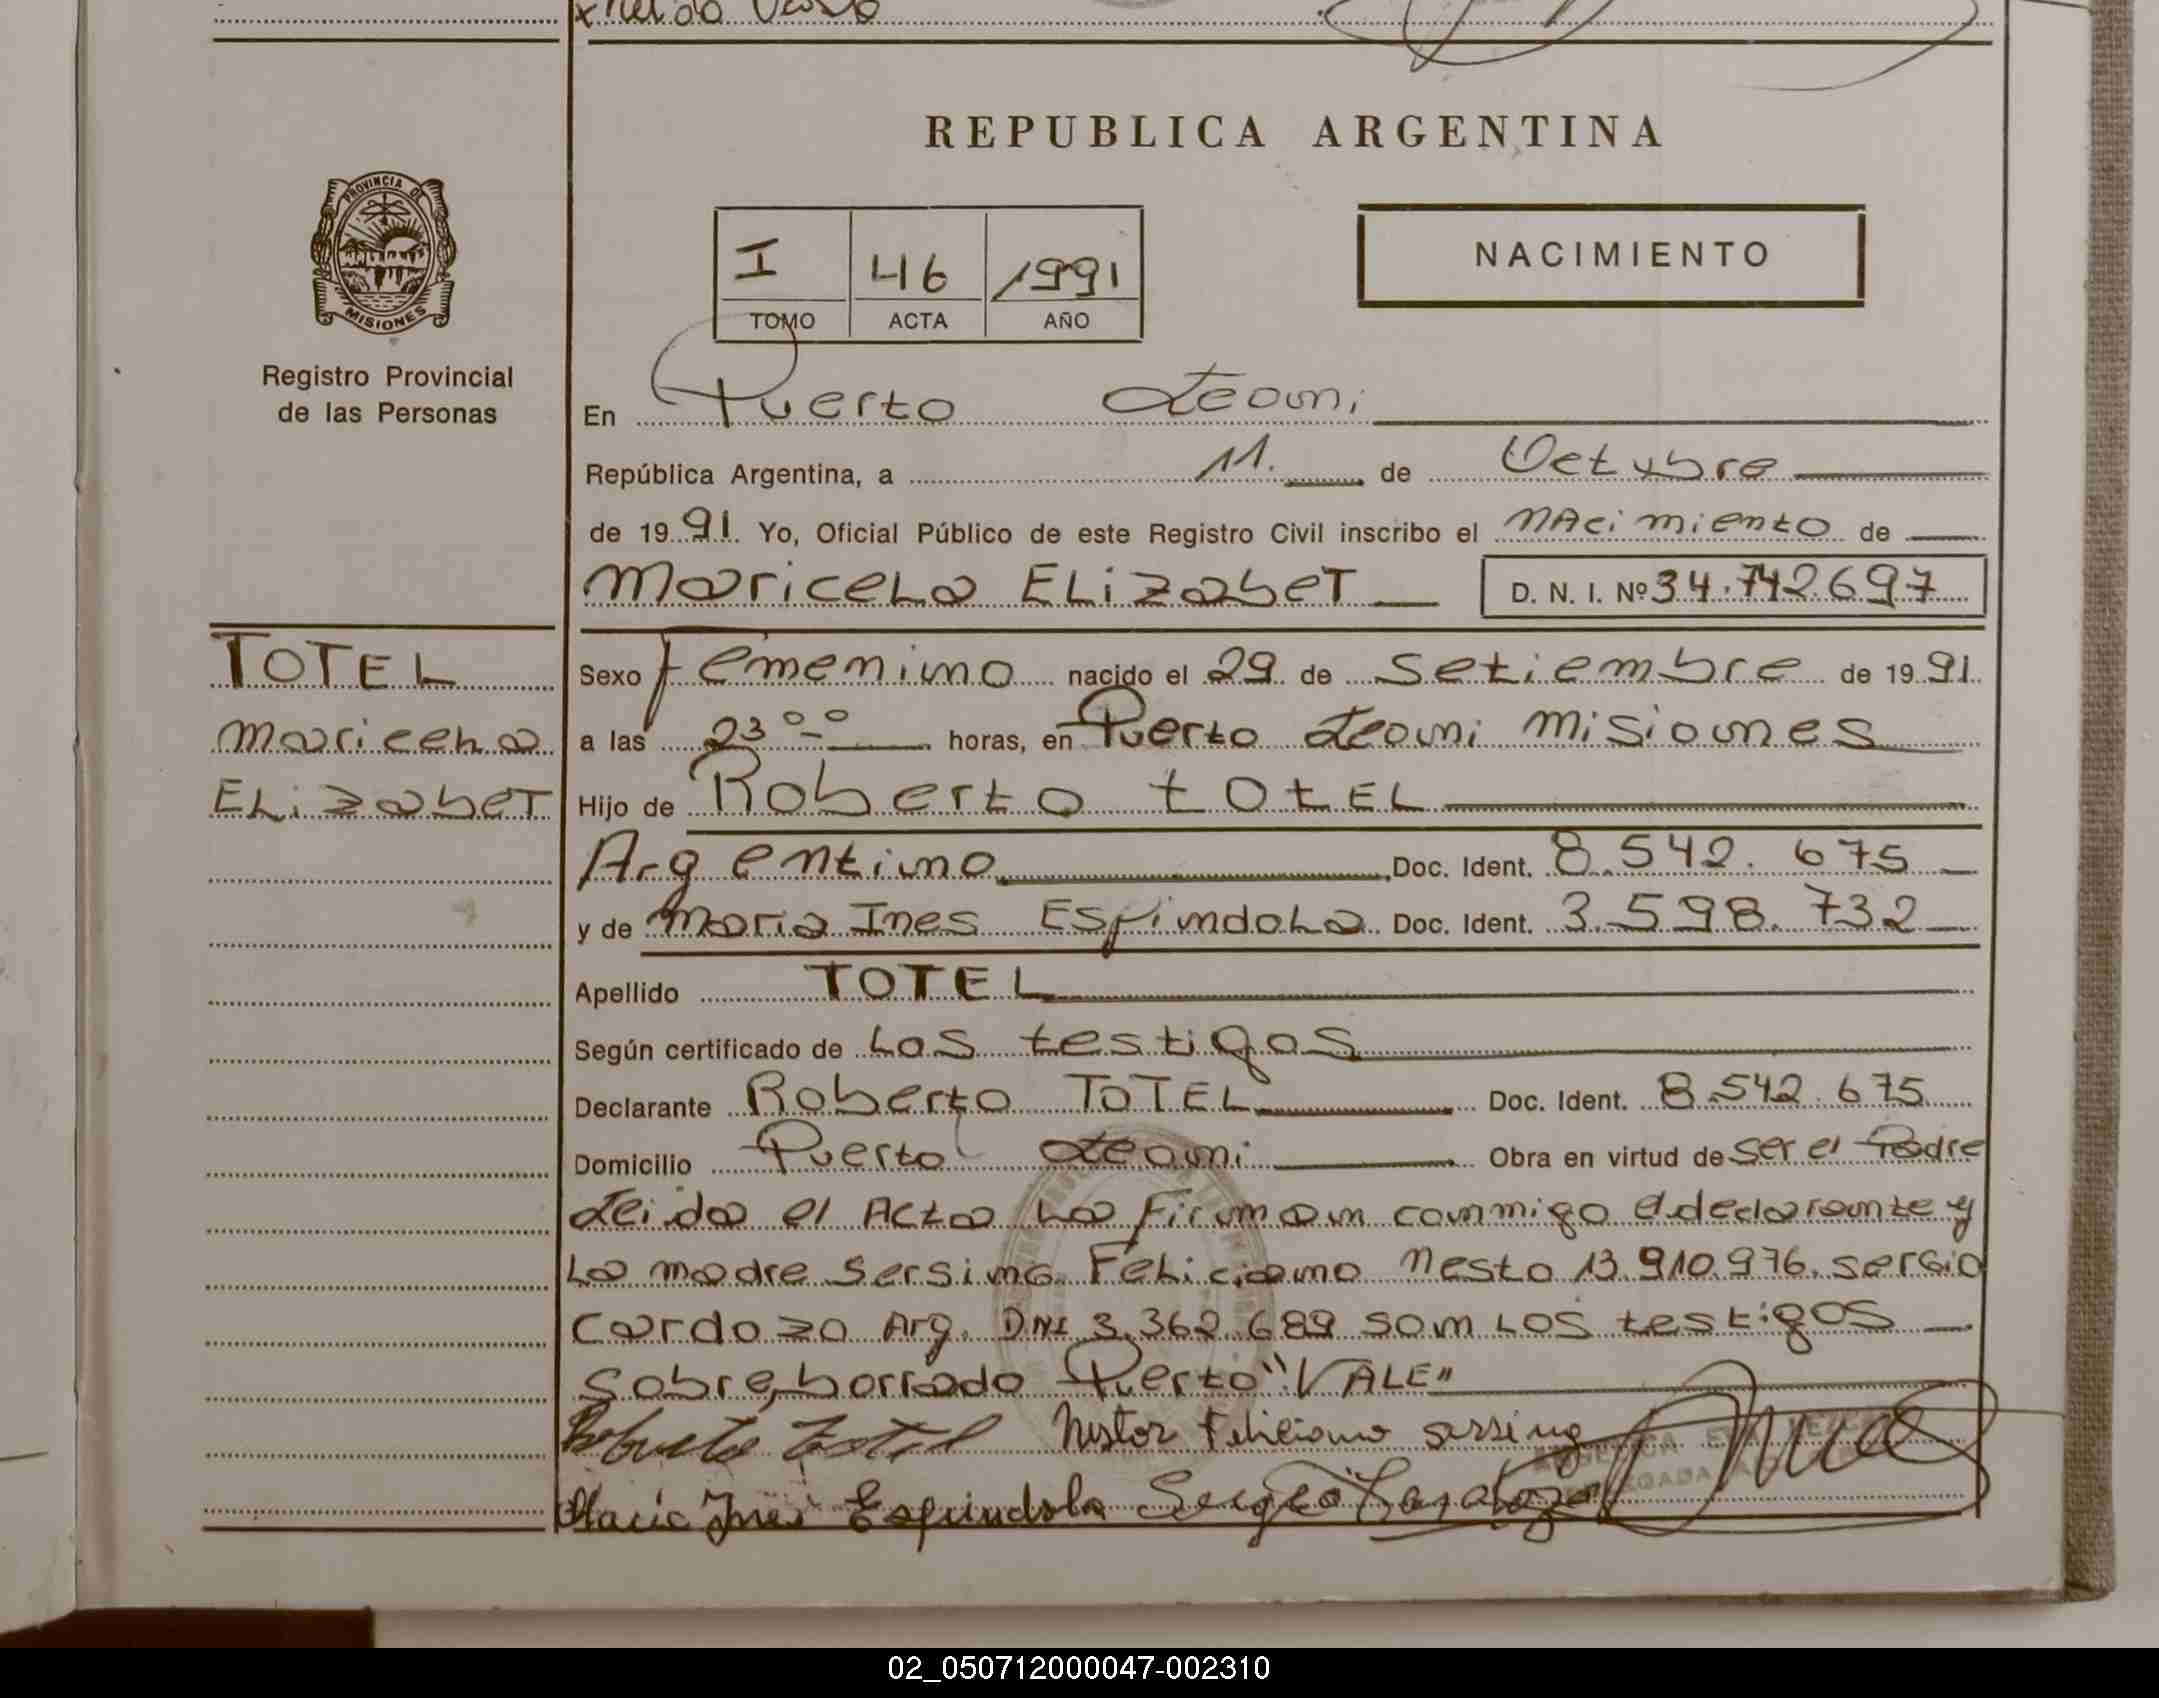 REPUBLICA ARGENTINA
PROVINCIA DE
MISIONES
Registro Provincial
de las Personas
I 46 1991
TOMO ACTA AÑO
NACIMIENTO
En Puerto Leoni
República Argentina, a 11. de Octubre
de 1991. Yo, Oficial Público de este Registro Civil inscribo el NAcimiento de
MariceLa ELizabeT D. N. I. Nº 34.742.697
TOTEL
MariceLa
ELizabeT
Sexo Femenino nacido el 29 de Setiembre de 1991.
a las 23 00 horas, en Puerto Leoni Misiones
Hijo de Roberto totEL
Argentino Doc. Ident. 8.542.675
y de Maria Ines EspindoLa Doc. Ident. 3.598.732
Apellido TOTEL
Según certificado de Los testigos
Declarante Roberto ToTEL Doc. Ident. 8.542.675
Domicilio Puerto Leoni Obra en virtud de Ser el Padre
Leida el Acta La Firman conmigo el declarante y
La madre Sersing FeLiciano Nesto 13.910.976. Sergio
Cardozo Arg. DNI 3.362.689 son Los testigos
Sobre borrado Puerto "VALE"
Roberto Totel Nestor Feliciano Sersing
Maria Ines Espindola Sergio Cardozo
02_050712000047-002310